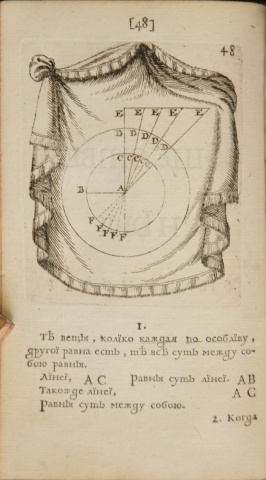 [48]
48
E E E E E
D D D D D
C C C C C
B A
F F F F F
1.
Тѣ вещїи, колїко каждая по особлїву,
другої равна есть, тѣ всѣ суть между со-
бою равнїи.
Лїнеї, АС Равнїи суть лїнеї. АВ
Такожде лїнеї, АС
Равнїи суть между собою.
2. Когда